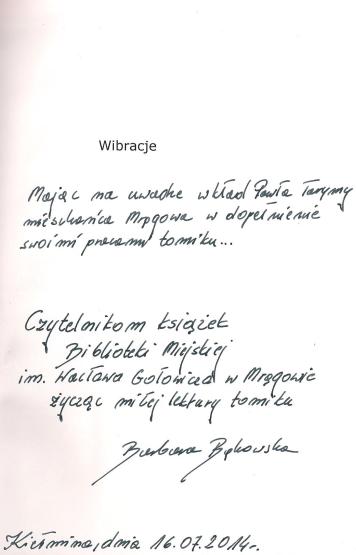 Wibracje
Mając na uwadze wkład Pawła Tarymy
mieszkańca Mrągowa w dopełnienie
swoimi pracami tomiku...
Czytelnikom książek
Biblioteki Miejskiej
im. Wacława Gołowicza w Mrągowie
życząc miłej lektury tomiku
Barbara Bękowska
dnia 16.07.2014r.